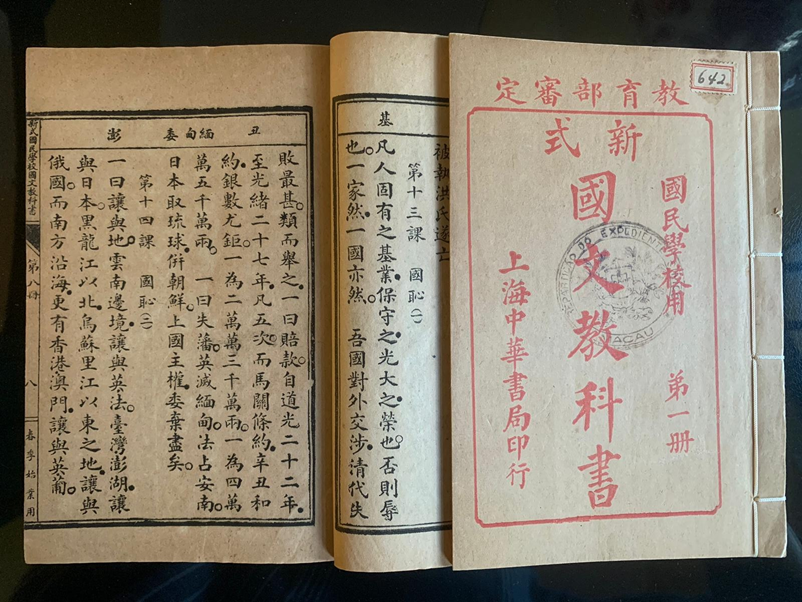 642
教育部審定
國民學校用 第一册
新式
國文教科書
上海中華書局印行
EXPEDIENTE
MACAU
基
被執洪氏遂亡
第十三課 國恥(一)
凡人固有之基業、保守之、光大之、榮也。否則辱
也。一家然、一國亦然。 吾國對外交涉、清代失
丑 緬甸 委 澎
敗最甚。類而舉之。一曰賠款。自道光二十二年、
至光緒二十七年、凡五次。而馬關條約、辛丑和
約、銀數尤鉅。一為二萬萬三千萬兩。一為四萬
萬五千萬兩。 一曰失藩。英滅緬甸。法占安南。
日本取琉球、併朝鮮。上國主權、委棄盡矣。
第十四課 國恥(二)
一曰讓與地。雲南邊境、讓與英法。臺灣澎湖、讓
與日本。黑龍江以北、烏蘇里江以東之地、讓與
俄國。而南方沿海、更有香港澳門、讓與英葡。
新式國民學校國文教科書
第八册
八
春季始業用